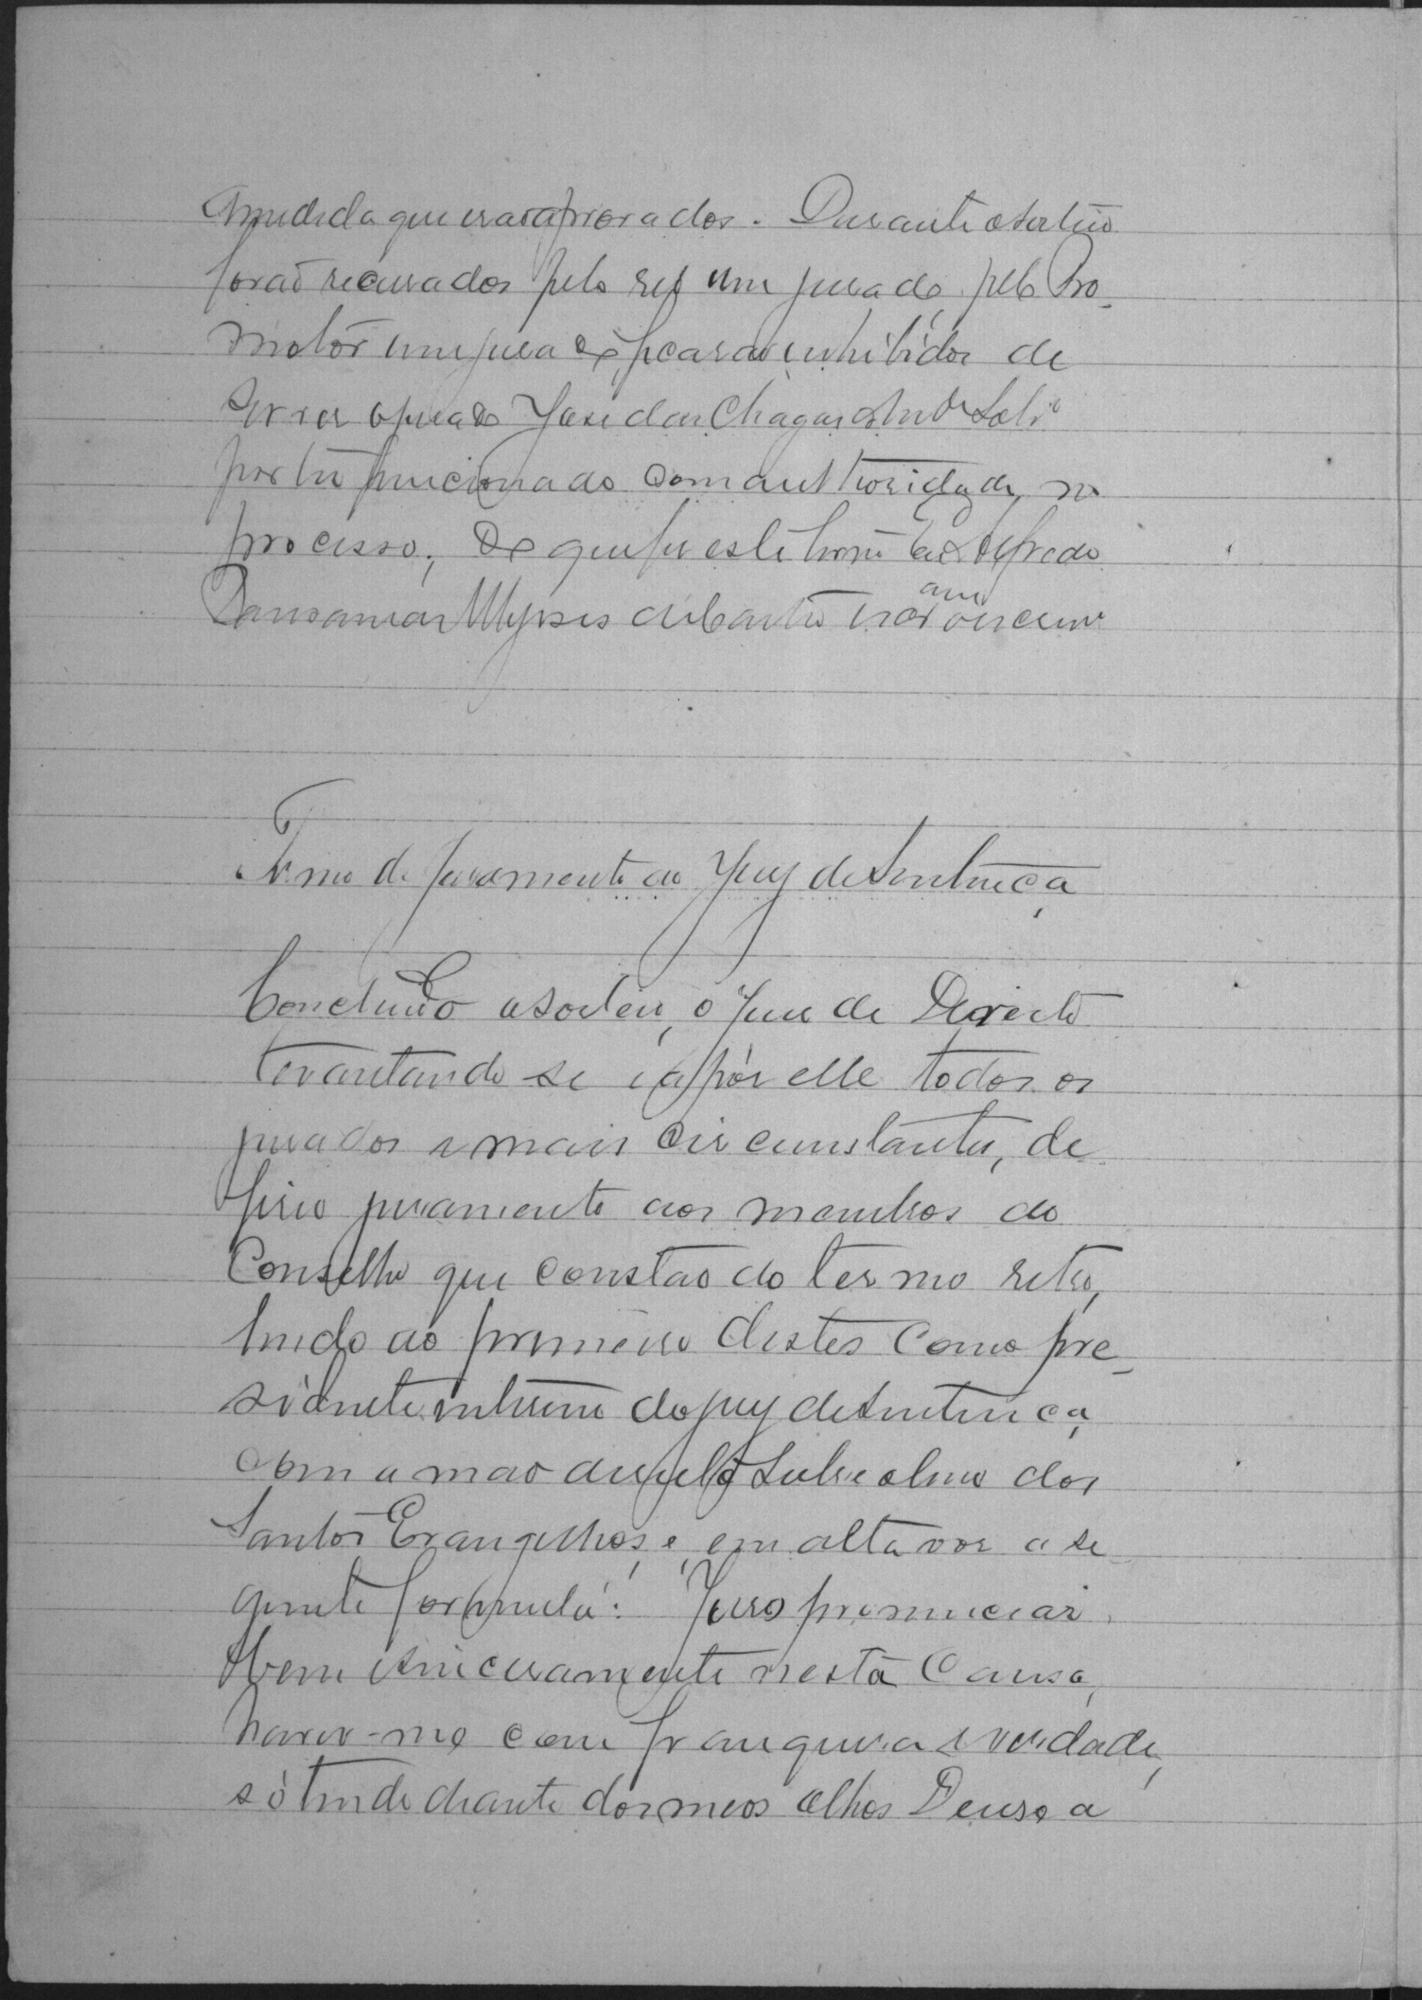 a medida que erão aprovados. Durante o sorteio
forão recusados pelo reo um jurado, pelo Pro-
motor um jurado, ficarão inhibidos de
servir o jurado José das Chagas
por ter funcionado com authoridade no
processo; do que fiz este termo Eu Alfredo
Pausanias Ulysses de Castro escrivão escrevi
Termo de juramento ao Jury de Sentença
Concluido o sorteio, o Juiz de Direito
levantando-se e após elle todos os
jurados e mais circunstantes, de
firio juramento aos membros do
Conselho que constão do termo retro,
lendo ao primeiro destes como pre-
sidente interino do jury de Sentença
com a mão direita sobre o livro dos
Santos Evangelhos, e em alta vos a se
guinte formula: Juro pronunciar
bem e sinceramente nesta Causa,
haver-me com franquesa e verdade,
só tendo diante dos meos olhos Deus e a